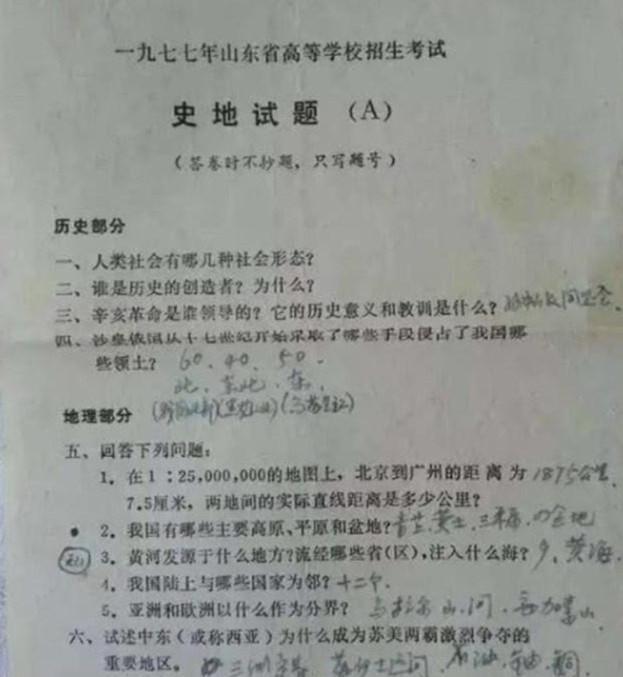 一九七七年山东省高等学校招生考试
史地试题 (A)
(答卷时不抄题, 只写题号)
历史部分
一、人类社会有哪几种社会形态?
二、谁是历史的创造者? 为什么?
三、辛亥革命是谁领导的? 它的历史意义和教训是什么?
四、沙皇俄国从十七世纪开始采取了哪些手段侵占了我国哪
些领土? 60. 40. 50.
北. 东北. 东.
地理部分
五、回答下列问题:
1. 在1:25,000,000的地图上, 北京到广州的距离为 1875公里.
7.5厘米, 两地间的实际直线距离是多少公里?
2. 我国有哪些主要高原、平原和盆地?
3. 黄河发源于什么地方?流经哪些省(区),注入什么海? 9、黄海
4. 我国陆上与哪些国家为邻? 十二个.
5. 亚洲和欧洲以什么作为分界?
六、试述中东(或称西亚)为什么成为苏美两霸激烈争夺的
重要地区。